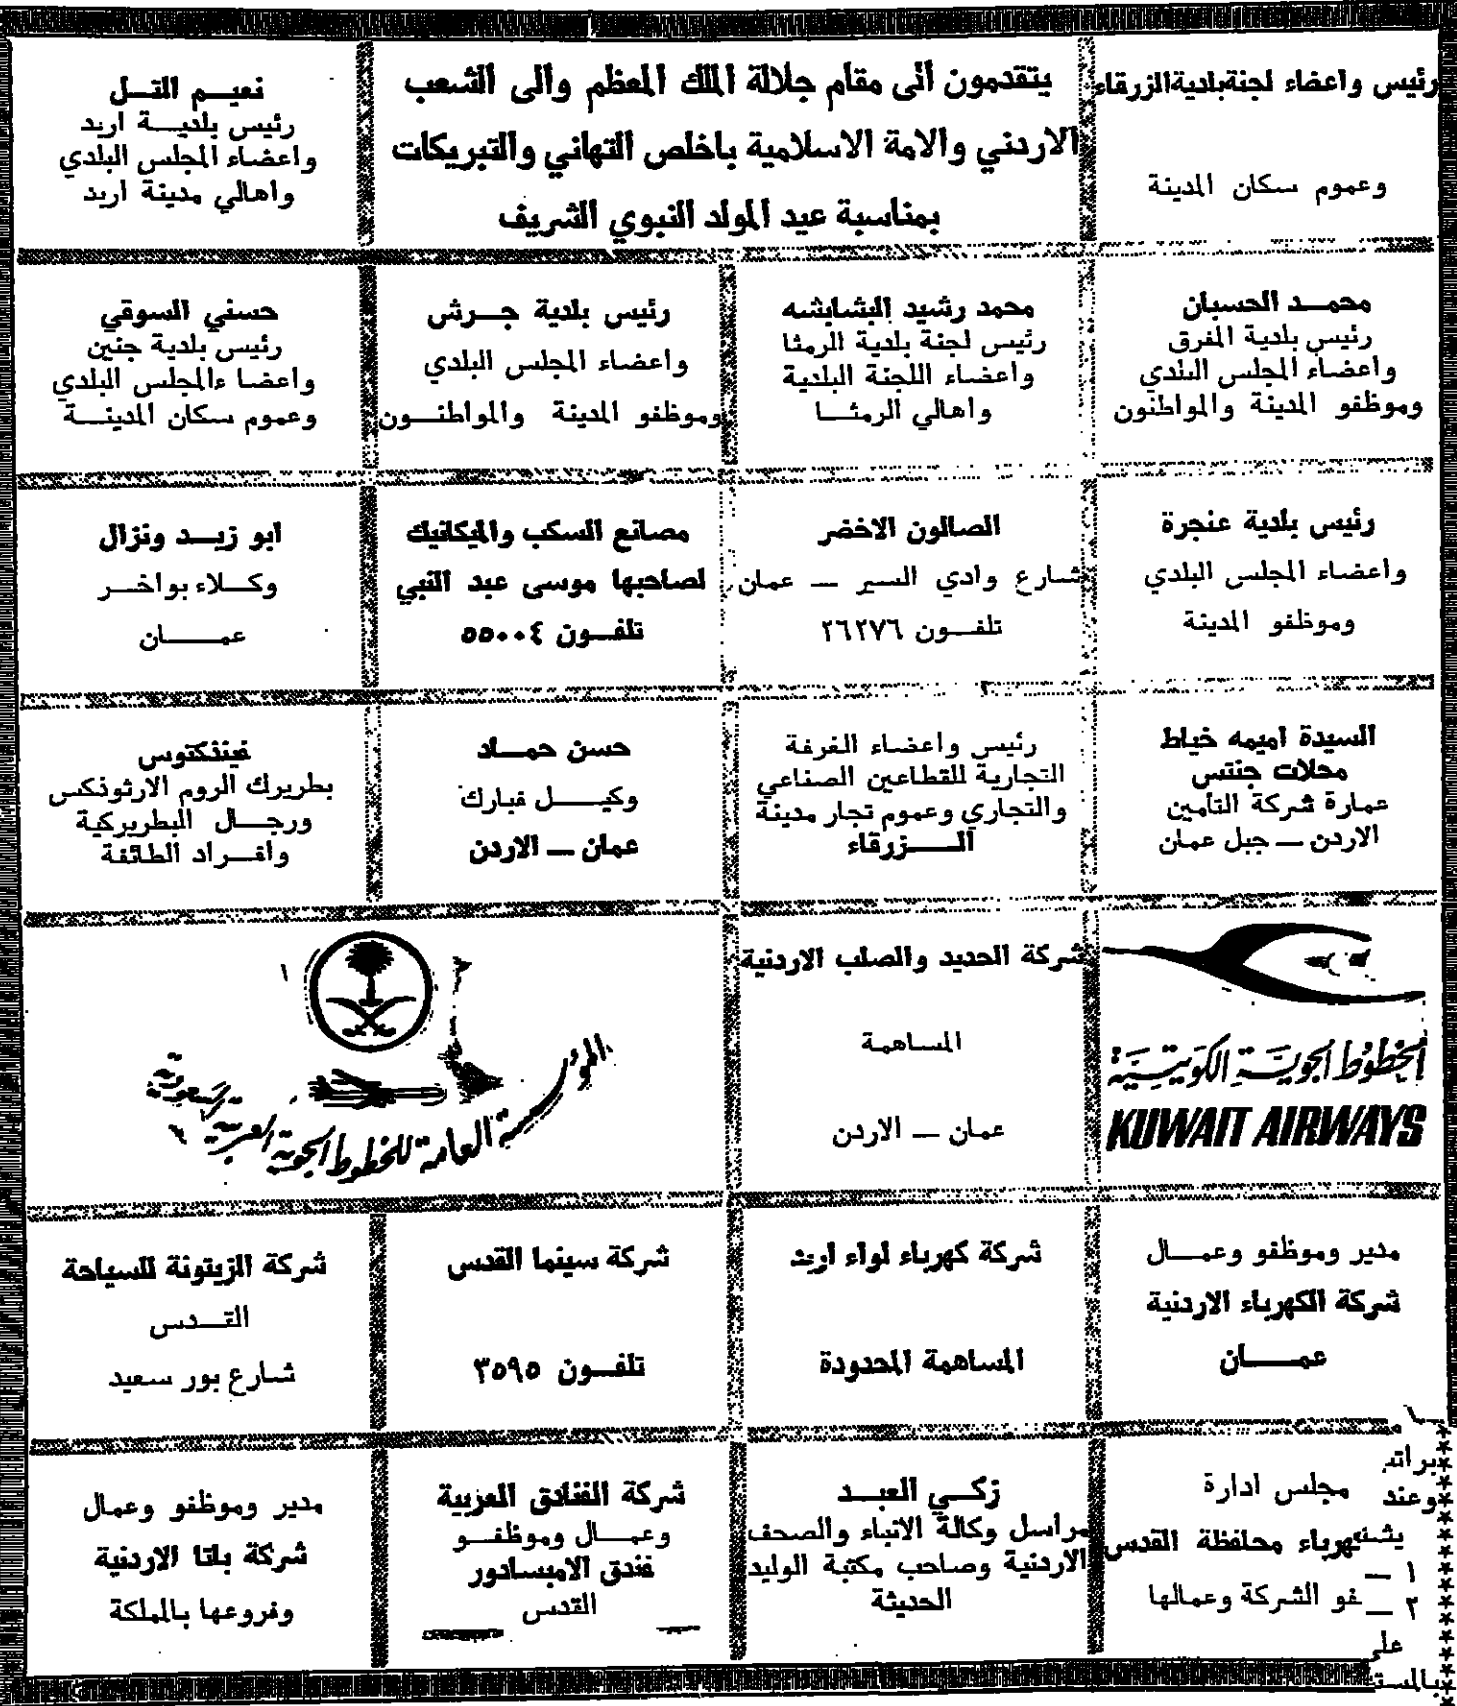 رئيس واعضاء لجنة بلدية الزرقاء
وعموم سكان المدينة
يتقدمون الى مقام جلالة الملك المعظم والى الشعب
الاردني والامة الاسلامية باخلص التهاني والتبريكات
بمناسبة عيد المولد النبوي الشريف
نعيـــم التـــل
رئيس بلديـــة اربد
واعضاء المجلس البلدي
واهالي مدينة اربد
محمـــد الحسبان
رئيس بلدية المفرق
واعضاء المجلس البلدي
وموظفو المدينة والمواطنون
محمد رشيد البشابشه
رئيس لجنة بلدية الرمثا
واعضاء اللجنة البلدية
واهالي الرمثـــا
رئيس بلدية جـــرش
واعضاء المجلس البلدي
وموظفو المدينة والمواطنـــون
حسني السوقي
رئيس بلدية جنين
واعضا ءالمجلس البلدي
وعموم سكان المدينـــة
رئيس بلدية عنجرة
واعضاء المجلس البلدي
وموظفو المدينة
الصالون الاخضر
شارع وادي السير — عمان
تلفـــون ٢٦٢٧٦
مصانع السكب والميكانيك
لصاحبها موسى عبد النبي
تلفـــون ٥٥٠٠٤
ابو زيـــد ونزال
وكـــلاء بواخـــر
عمـــــان
السيدة اميمه خياط
محلات جنتس
عمارة شركة التأمين
الاردن — جبل عمان
رئيس واعضاء الغرفة
التجارية للقطاعين الصناعي
والتجاري وعموم تجار مدينة
الـــــزرقاء
حسن حمـــاد
وكيـــــل قبارك
عمان — الاردن
فينذكتوس
بطريرك الروم الارثوذكس
ورجـــال البطريركية
وافـــراد الطائفة
الخطوط الجوية الكويتية
KUWAIT AIRWAYS
شركة الحديد والصلب الاردنية
المساهمة
عمان — الاردن
المؤسسة العامة للخطوط الجوية العربية السعودية
مدير وموظفو وعمـــال
شركة الكهرباء الاردنية
عمـــــان
شركة كهرباء لواء اربد
المساهمة المحدودة
شركة سينما القدس
تلفـــون ٣٥٩٥
شركة الزيتونة للسياحة
القـــدس
شارع بور سعيد
مجلس ادارة
كهرباء محافظة القدس
فو الشركة وعمالها
زكـــي العبـــد
مراسل وكالة الانباء والصحف
الاردنية وصاحب مكتبة الوليد
الحديثة
شركة الفنادق العربية
وعمـــال وموظفـــو
فندق الامبسادور
القدس
مدير وموظفو وعمال
شركة باتا الاردنية
وفروعها بالملكة
وعند
١ —
٢ —